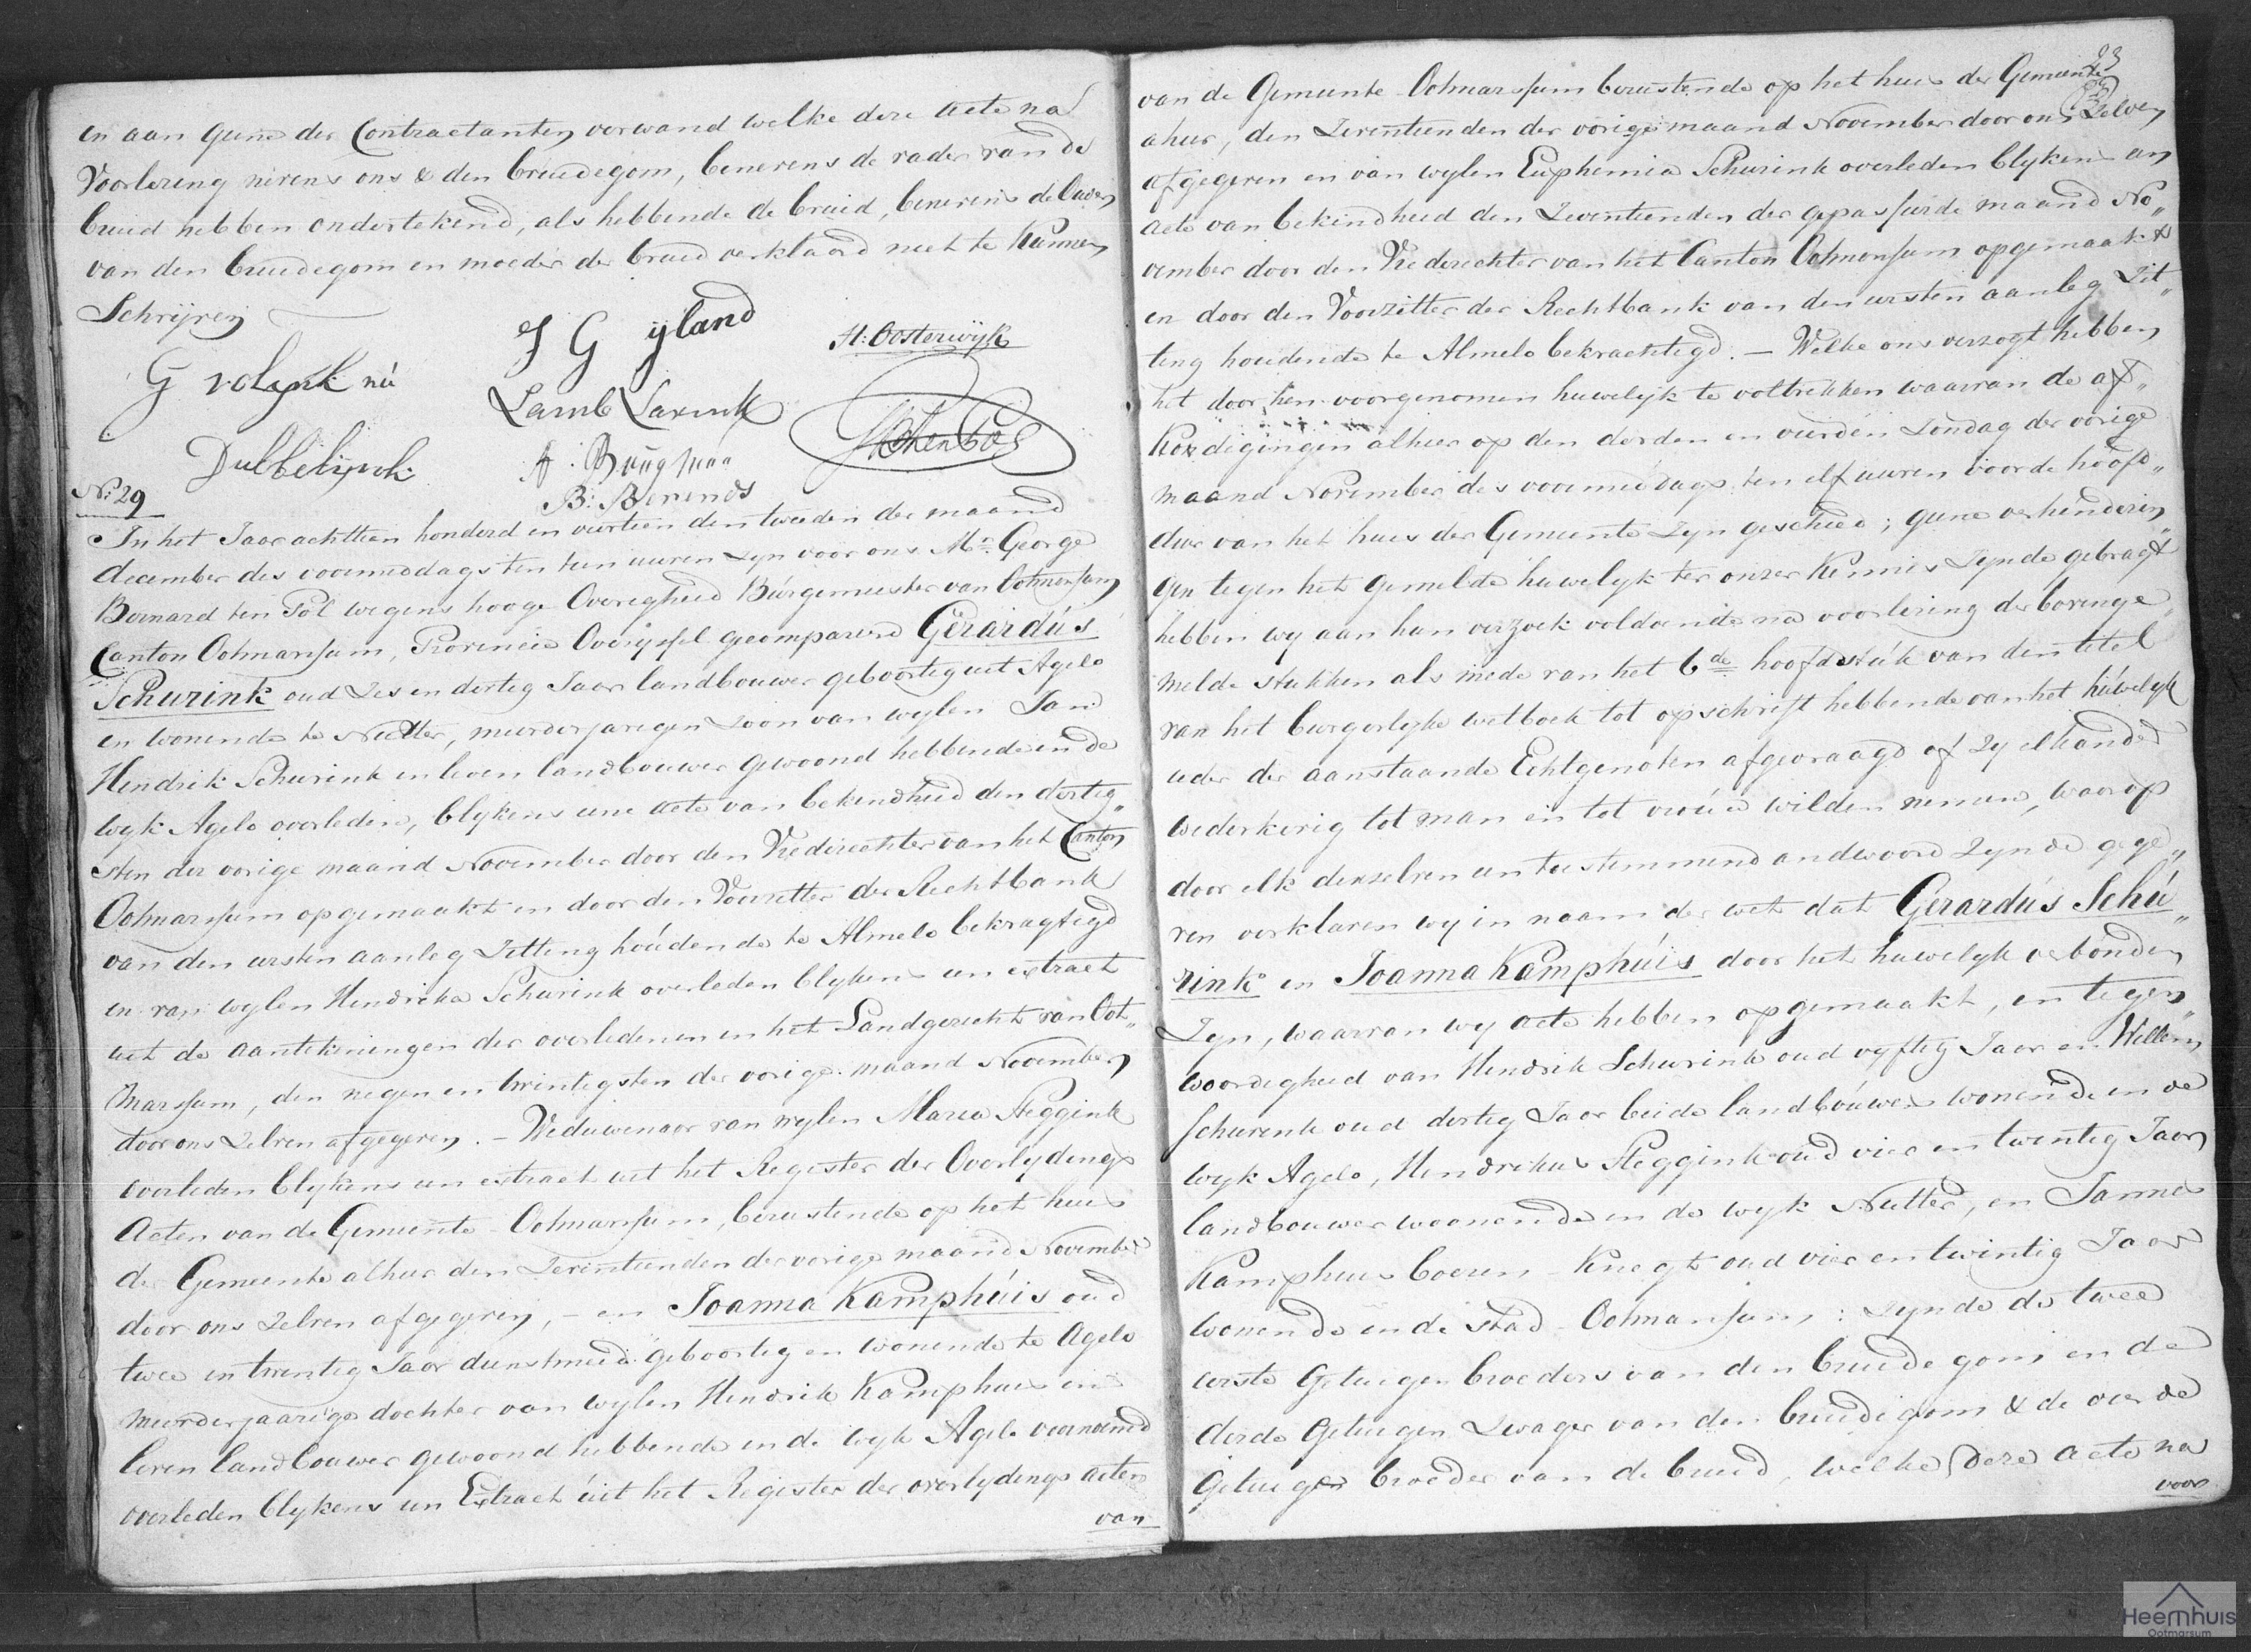 en aan geene der Contractanten verwand welke deze acte na
Voorlezing nevens ons & den bruidegom, benevens de vader van de
bruid hebben ondertekend, als hebbende de bruid, benevens de
van den bruidegom en moeder der bruid verklaard niet te Kunnen
Schrijven
J G ijland
H: Oosterwijk
G
Lamb Laxink
Dubbelinck
B: Berends
No. 29
In het Jaar achttien honderd en viertien den tweeden der maand
december des voormiddags ten tien uuren zyn voor ons Mr. George
Bernard ten Pol wegens hooge Overigheid Burgemeester van Ootmarsum
Canton Ootmarsum, Provincie Overyssel gecompareerd Gerardús
Schurink oud zes en dertig Jaar landbouwer geboortig uit Agelo
en wonende te Nutter, meerderjarigen zoon van wylen Jan
Hendrik Schurink in leven landbouwer gewoond hebbende in de
wyk Agelo overleden, blykens eene acte van bekendheid den dertig„
sten der vorige maand November door den Vrederechter van het Canton
Ootmarsum opgemaakt en door den Voorzitter der Rechtbank
van den eersten aanleg zitting houdende te Almelo bekragtigd
en van wylen Hendrika Schurink overleden blykens een extract
uit de aantekeningen der overledenen in het Landgericht van Oot„
marssum, den negen en twintigsten der vorige maand November
door ons zelven afgegeven. – Weduwenaar van wylen Maria Steggink
overleden blykens een extract uit het Register der Overlydings
Acten van de Gemeente Ootmarssum, berustende op het huis
der Gemeente alhier den Zeventienden der vorige maand November
door ons zelven afgegeven, – en Joanna Kamphúis oud
twee en twentig Jaar dienstmeid geboortig en wonende te Agelo
meerderjaarige dochter van wylen Hendrik Kamphuis in
leven landbouwer gewoond hebbende in de wyk Agelo voornoemd
overleden blykens een Extract uit het Register der overlydings acten
van
23
van de Gemeente Ootmarssum berustende op het huis der Gemeente
alhier, den Zeventienden der vorige maand November door ons Zelven
afgegeven en van wylen Euphemia Schurink overleden blykens een
acte van bekendheid den Zeventienden der gepasseerde maand No„
vember door den Vrederechter van het Canton Ootmarsum opgemaakt
en door den Voorzitter der Rechtbank van den eersten aanleg Zit„
ting houdende te Almelo bekrachtigd. – Welke ons verzogt hebben
het door hen voorgenomen huwelyk te voltrekken waarvan de af„
Kondigingen alhier op den derden en vierden Zondag der vorige
maand November des voormiddags ten elf uuren voor de hoofd„
deur van het huis der Gemeente Zyn geschied; geene verhinderin„
gen tegen het gemelde huwelyk ter onzer Kennis Zynde gebragt
hebben wy aan hun verzoek voldoende na voorlezing der bovenge„
melde stukken als mede van het 6de hoofdstuk van den titel
van het burgerlyke wetboek tot opschrift hebbende van het húwelyk
ieder der aanstaande Echtgenoten afgevraagd of Zy elkander
wederkerig tot man en tot vrouw wilden nemen, waarop
door elk denzelven een toestemmend andwoord Zynde gege„
ven verklaren wy in naam der wet dat Gerardús Schú„
rink en Joanna Kamphúis door het huwelyk verbonden
Zyn, waarvan wy acte hebben opgemaakt, in tegen„
woordigheid van Hendrik Schurink oud vyftig Jaar en Willem
Schurink oud dertig Jaar beide landbouwers wonende in de
wyk Agelo, Hendrikus Steggink oud vier en twentig Jaar
landbouwer woonende in de wyk Nutter, en Jannes
Kamphuis boeren Knegt oud vier en twintig Jaar
wonende in de stad Ootmarsum: Zynde de twee
eerste Getuigen broeders van den bruidegom en de
derde Getuigen Zwager van den bruidegom & de vierde
Getuigen broeder van de bruid, welke deze acte na
voor
Heemhuis
Ootmarsum